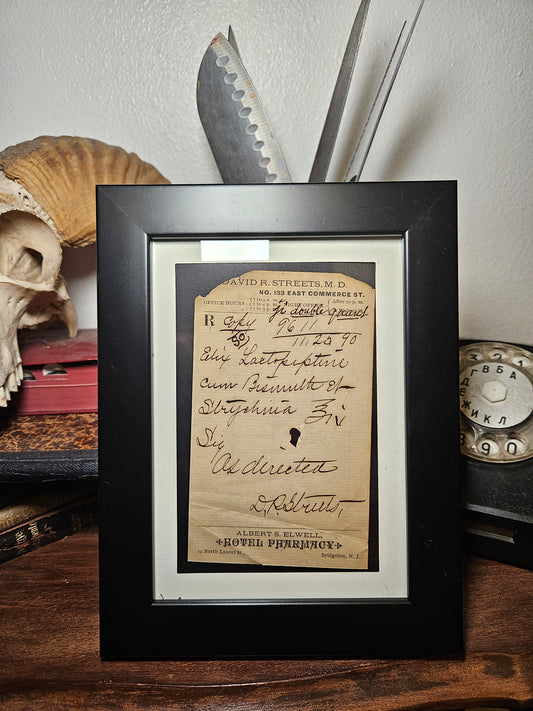 DAVID R. STREETS, M.D.
NO. 133 EAST COMMERCE ST.
OFFICE HOURS
OFFICE
After 10 P. M.
R Copy
96 11
11.25 90
Elix Lactopeptine
cum Bismuth et
Strychnia ℥iv
Sig
As directed
D.R. Streets,
ALBERT S. ELWELL,
HOTEL PHARMACY
14 North Laurel St.
Bridgeton, N. J.
А Б В Г Д
Ж И К Л
8 9 0